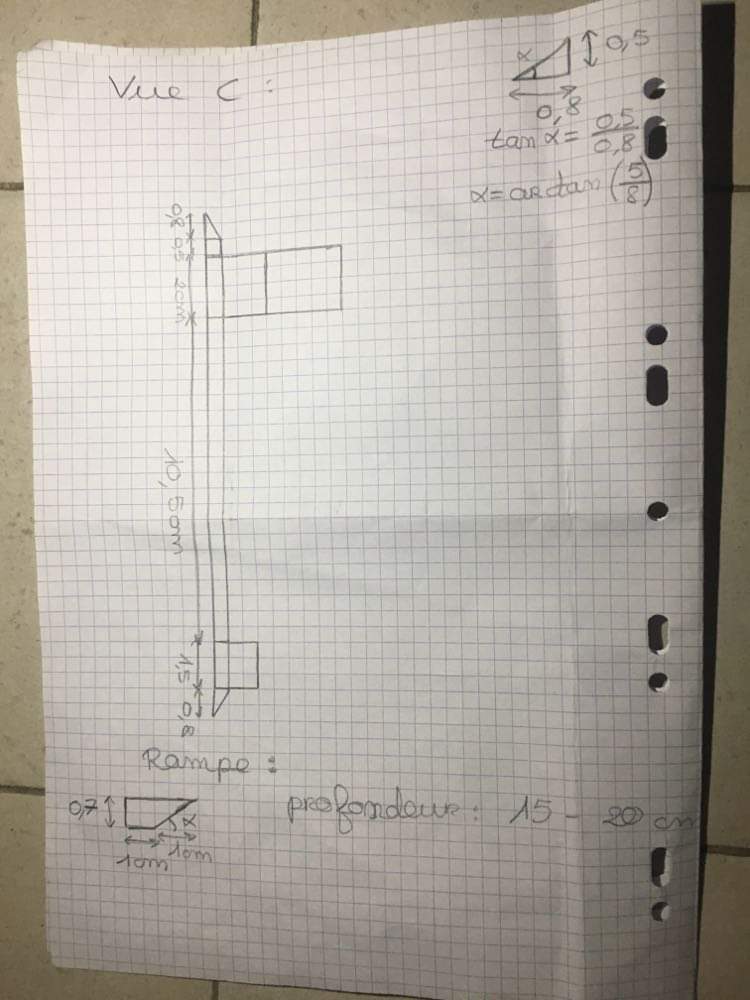 Vue C :
α
0,5
0,8
tan α = 0,5/0,8
α = arctan (5/8)
0,8
0,5
2cm
10,5cm
1,5
0,8
Rampe :
0,7
α
1cm
1cm
profondeur : 15 - 20 cm